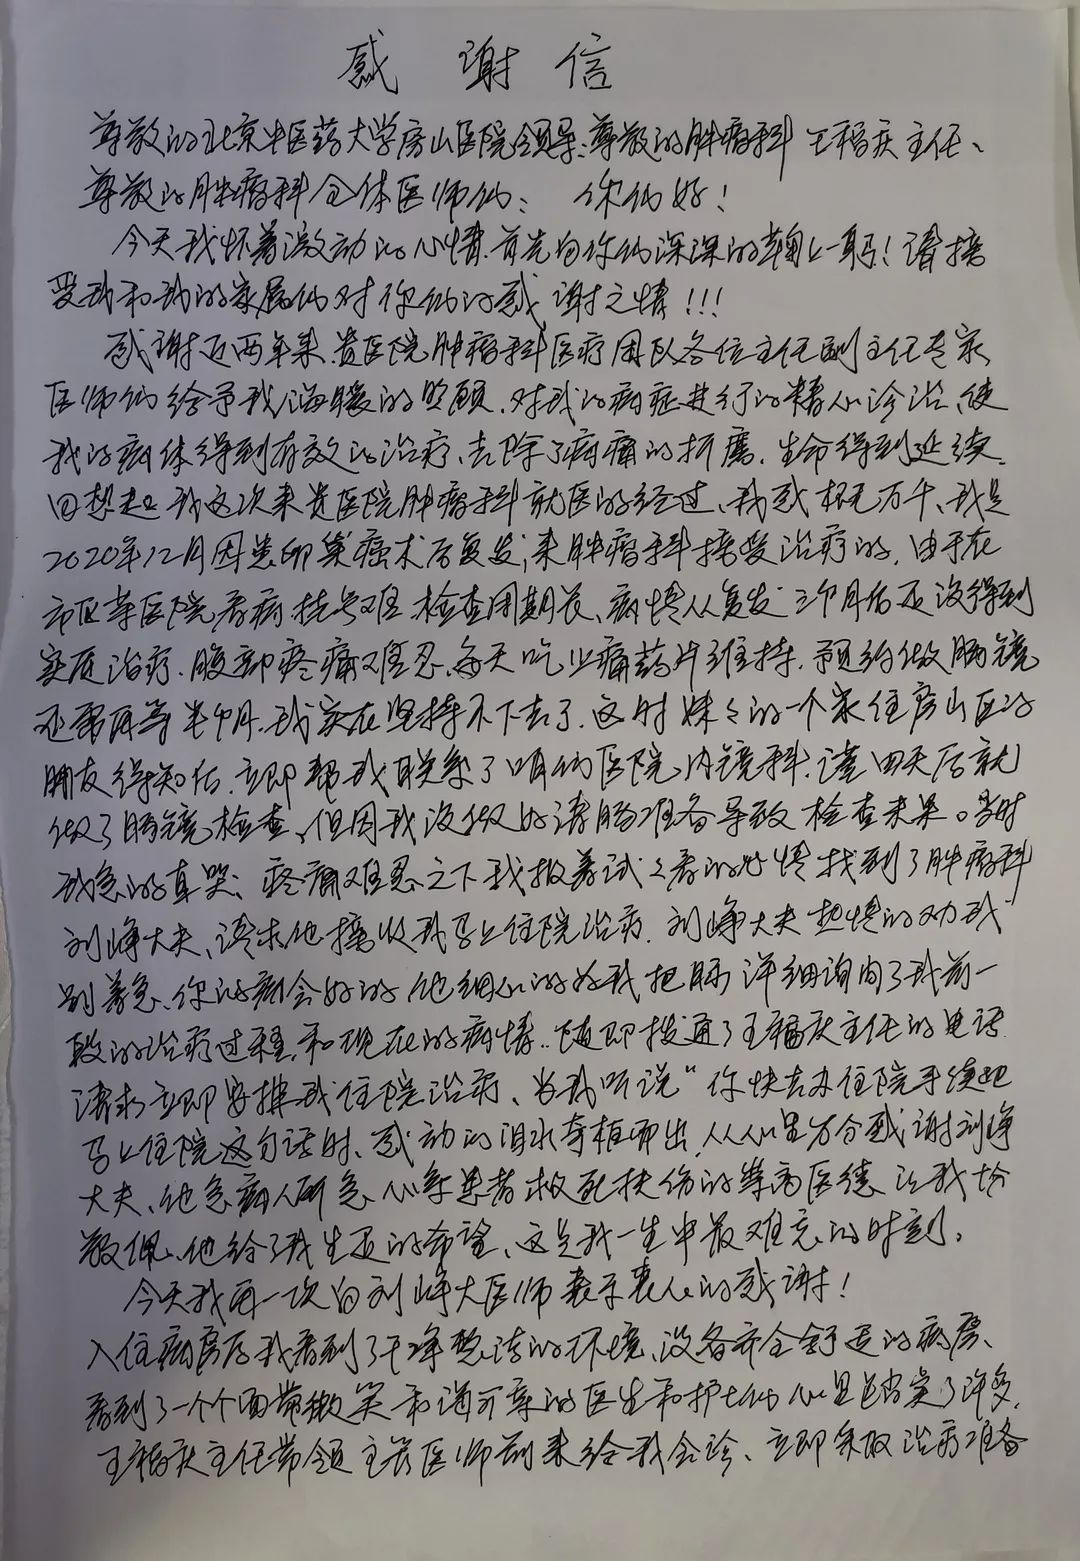 感谢信
尊敬的北京中医药大学房山医院领导：尊敬的肿瘤科王福庆主任、
尊敬的肿瘤科全体医师们： 你们好！
今天我怀着激动的心情.首先向你们深深的鞠上一躬！请接
受我和我的家属们对你们的感谢之情！！！
感谢近两年来贵医院肿瘤科医疗团队各位主任副主任专家
医师们给予我温暖的照顾.对我的病症进行的精心诊治、使
我的病体得到有效的治疗、去除了病痛的折磨.生命得到延续.
回想起我这次来贵医院肿瘤科就医的经过、我感慨万千、我是
2020年12月因患卵巢癌术后复发，来肿瘤科接受治疗的.由于在
市区等医院看病挂号难检查周期长、病情从复发三个月后还没得到
实质治疗.腹部疼痛难忍、每天吃止痛药片维持.预约做肠镜
还需再等半个月.我实在坚持不下去了.这时妹々的一个家住房山区的
朋友得知后.立即帮我联系了咱们医院内镜科.谨四天后就
做了肠镜检查、但因我没做好清肠准备导致检查未果。当时
我急的直哭、疼痛难忍之下我报着试々看的心情找到了肿瘤科
刘峥大夫、请求他接收我马上住院治疗.刘峥大夫热情的劝我
别着急、你的病会好的他细心的为我把脉详细询问了我前一
段的治疗过程.和现在的病情..随即拨通了王福庆主任的电话
请求立即安排我住院治疗、当我听说“你快去办住院手续吧
马上住院这句话时、感动的泪水夺框而出.从心里万分感谢刘峥
大夫、他急病人所急、心系患者救死扶伤的崇高医德让我十分
敬佩、他给了我生还的希望、这是我一生中最难忘的时刻。
今天我再一次向刘峥大医师表示衷心的感谢！
入住病房后我看到了干净整洁的环境、设备齐全舒适的病房、
看到了一个个面带微笑和蔼可亲的医生和护士们心里踏实了许多.
王福庆主任带领主管医师前来给我会诊、立即采取治疗准备